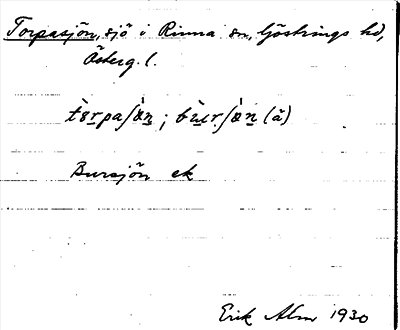 Torpasjön, sjö i Rinna sn, Göstrings hd,
Österg. l.
tòrpaʃǽn ; bùrʃǽn (ä)
Bursjön ek
Erik Alm 1930